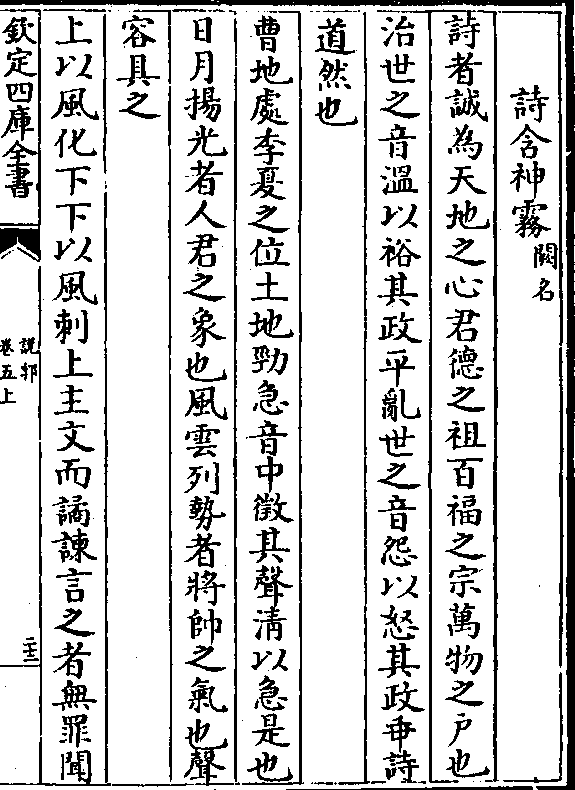 詩含神霧闕名
詩者誠為天地之心君德之祖百福之宗萬物之户也
治世之音溫以裕其政平亂世之音怨以怒其政乖詩
道然也
曹地處季夏之位土地勁急音中徵其聲清以急是也
日月揚光者人君之象也風雲列勢者將帥之氣也聲
容具之
上以風化下下以風刺上主文而譎諫言之者無罪聞
欽定四庫全書
說郛
卷五上
二十三